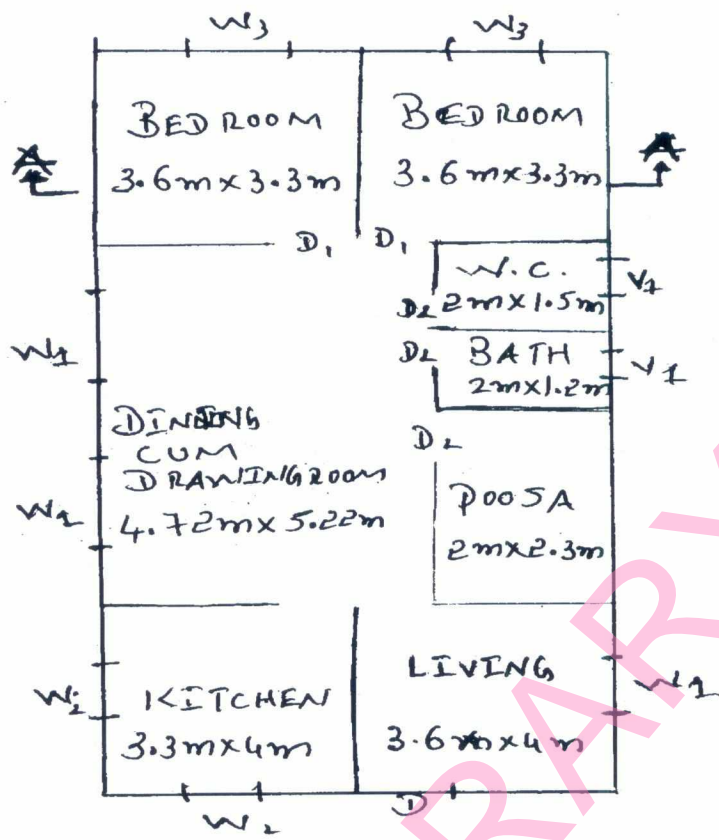 W3 W3
BEDROOM
3.6m x 3.3m
BEDROOM
3.6m x 3.3m
A A
D1 D1
W.C.
2m x 1.5m
V1
D2
D2
BATH
2m x 1.2m
V1
W1
DINING
CUM
DRAWINGROOM
4.72m x 5.22m
W1
D2
POOJA
2m x 2.3m
W2
KITCHEN
3.3m x 4m
LIVING
3.6m x 4m
W1
W2
D